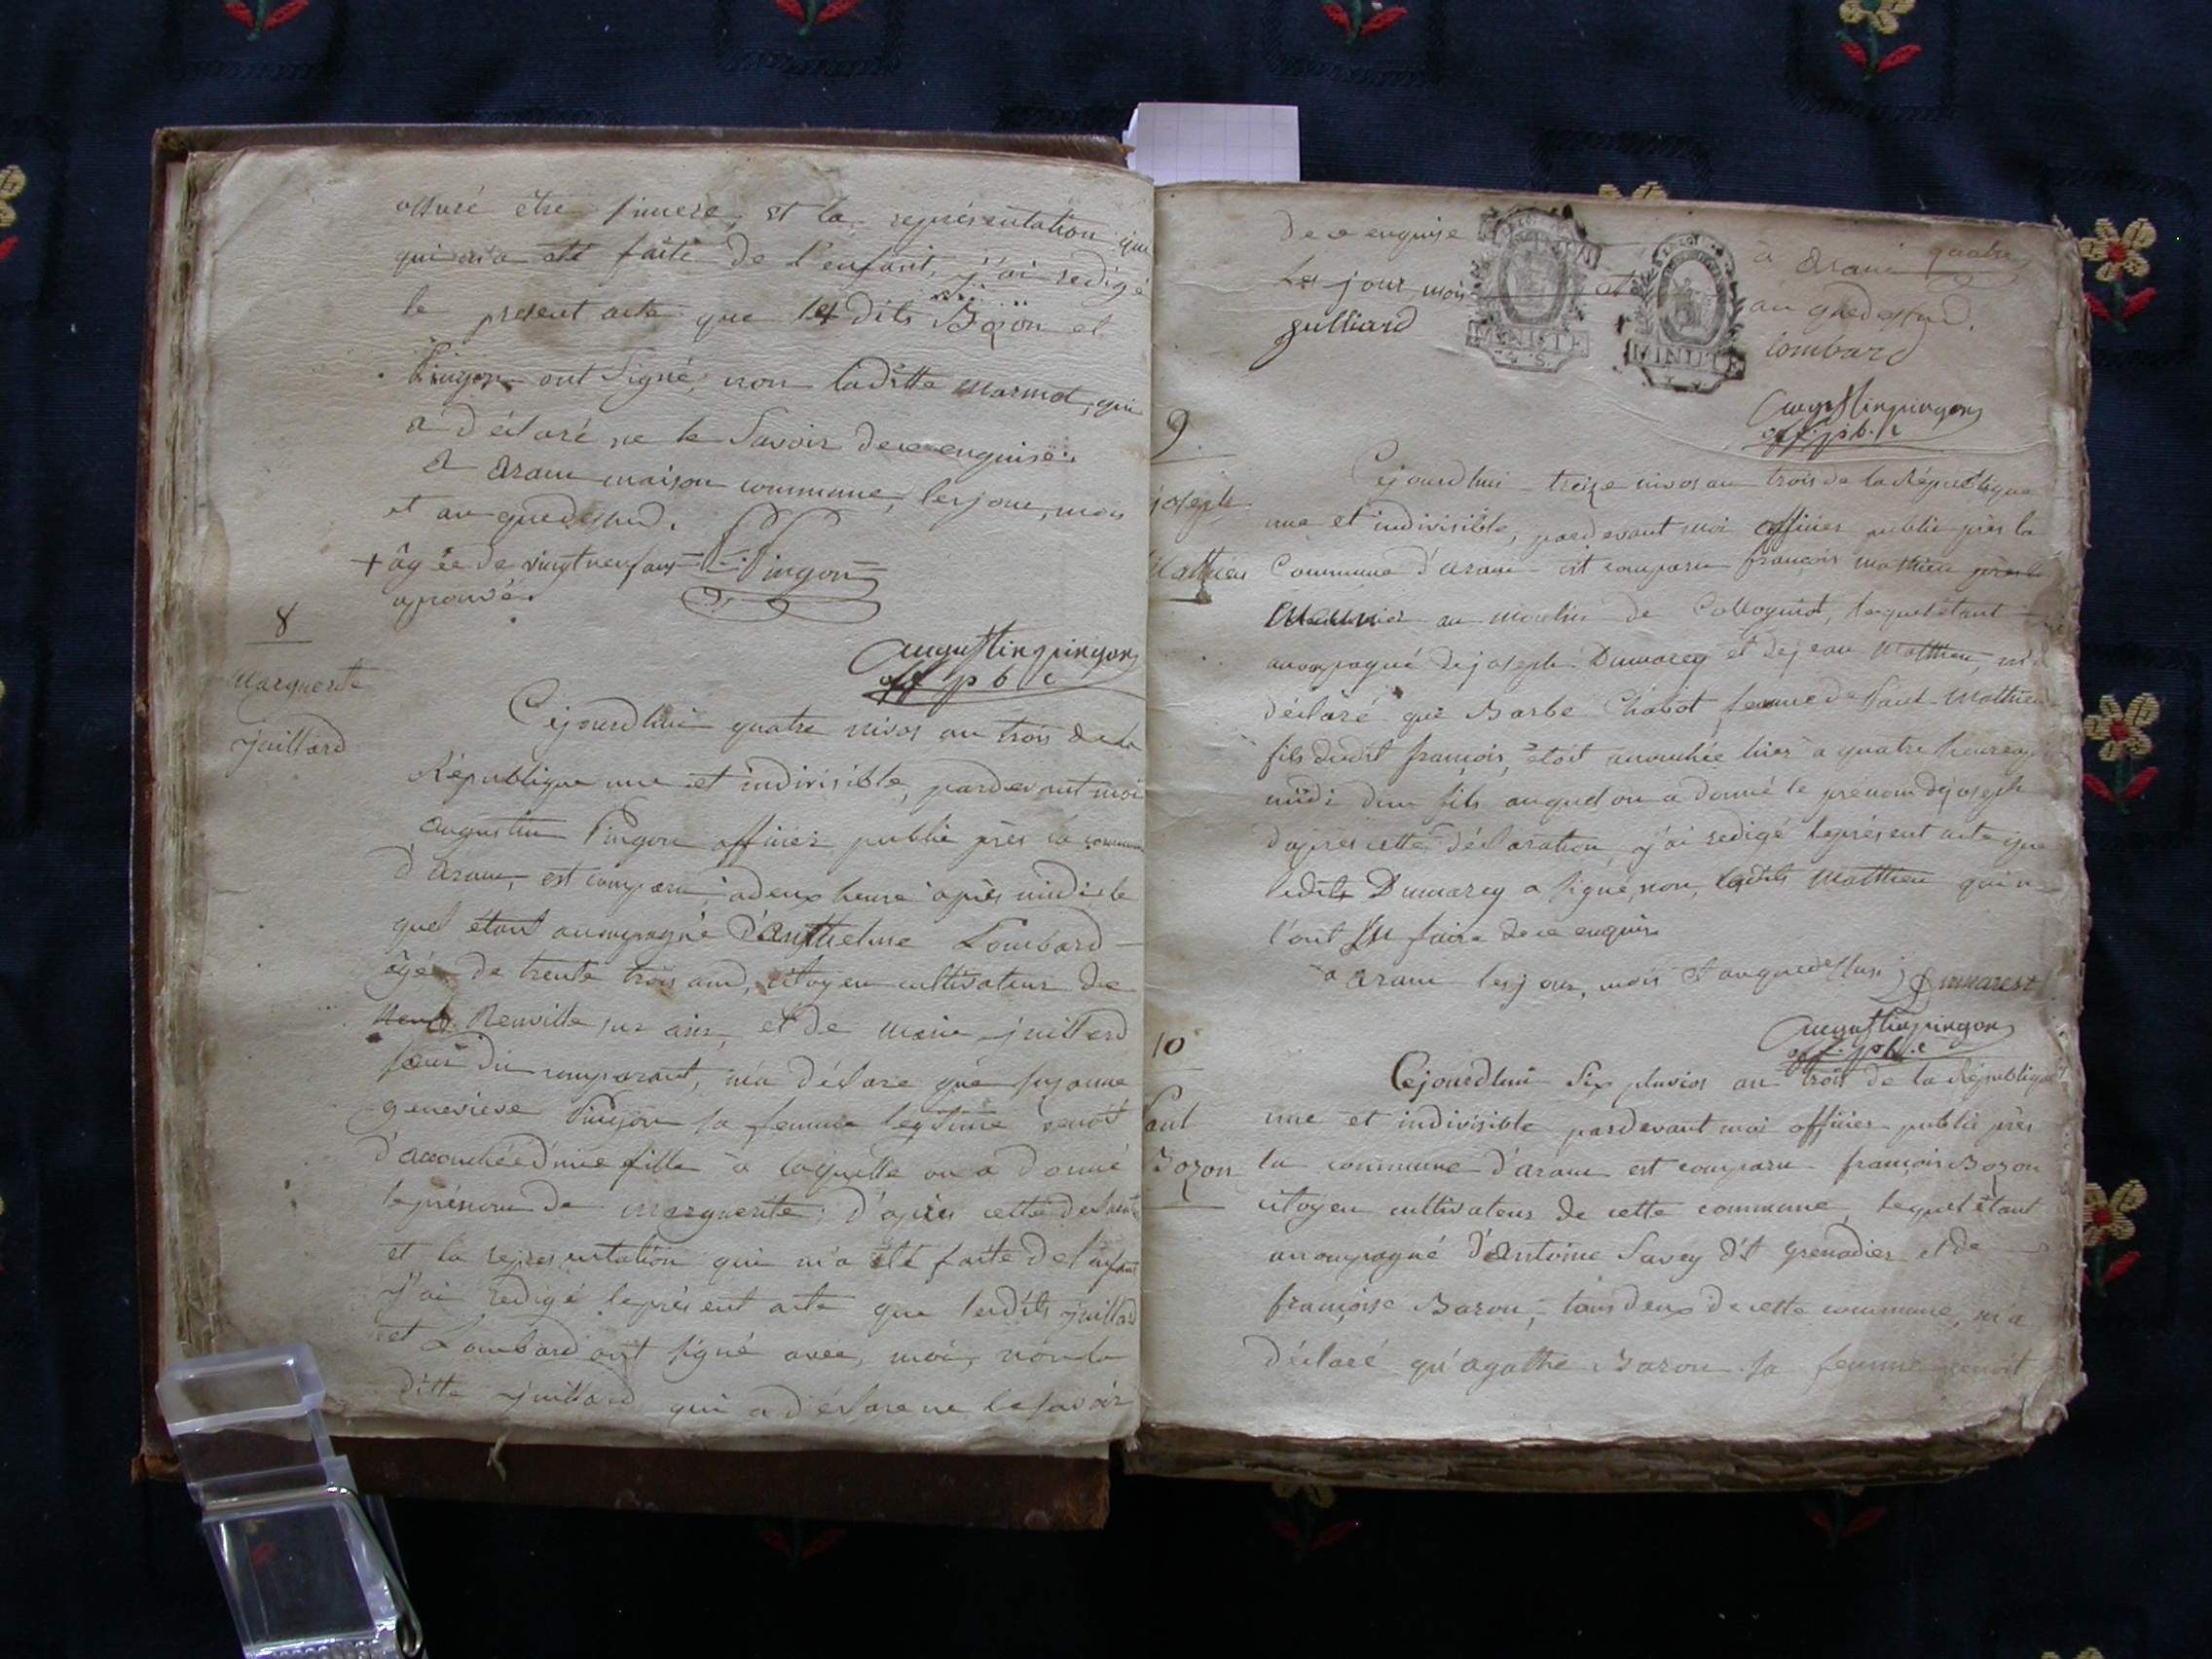 assuré être sincere, et la représentation que
qui m'a été faite de l'enfant, j'ai redigé
le présent acte que lesdits Bozon et
Pingon ont signé, non laditte Marmot, qui
a déclaré ne le savoir de ce enquise.
à aranc maison commune, les jour, mois
et an que dessus.
+ âgée de vingt neuf ans Pingon
aprouvé.
augustin pingon
off pblc
8
Marguerite
juillard
Cejourdhui quatre nivos an trois de la
République une et indivisible, pardevant moi
augustin Pingon officier public près la commune
d'aranc, est comparu, a deux heure après midi le
quel étant accompagné d'Anthelme Lombard
âgé de trente trois ans, citoyen cultivateur de
Neuville sur ains, et de marie juillard
sœur du comparant, m'a déclaré que suzanne
genevieve Pingon sa femme legitime venoit
d'accouchée d'une fille à laquelle on a donné
le prénom de marguerite, d'après cette declaration
et la representation qui m'a été faite de l'enfant
j'ai redigé le présent acte que lesdits juillard
et Lombard ont signé avec moi, non la
ditte juillard qui a déclaré ne le savoir
de ce enquise à aranc quatre
les jour, mois et an que dessus.
julliard lombard
MINUTE
MINUTE
augustin pingon
off. pb.c
9
joseph
Matthieu
Cejourdhui treize nivos an trois de la République
une et indivisible, pardevant moi officier public près la
Commune d'aranc est comparu françois mathieu
Meunier au moulin de Collognat, lequel étant
accompagné de joseph Dumarey et de jean Matthieu, m'a
déclaré que Barbe Chabot femme de Paul Matthieu
fils dudit françois, étoit accouchée hier à quatre heures après
midi d'un fils auquel on a donné le prénom de joseph
d'après cette déclaration, j'ai redigé le présent acte que
ledit Dumarey a signé, non, lesdits Matthieu qui ne
l'ont su faire de ce enquis
à aranc les jour, mois et an que dessus Dumarest
augustin pingon
off. pb.c
10
Paul
Bozon
Cejourdhui six pluvios an trois de la République
une et indivisible pardevant moi officier public près
la commune d'aranc est comparu françois Bozon
citoyen cultivateur de cette commune, lequel étant
accompagné d'Antoine Savey dit Grenadier et de
françoise Baron, tous deux de cette commune, m'a
déclaré qu'agathe Baron sa femme venoit